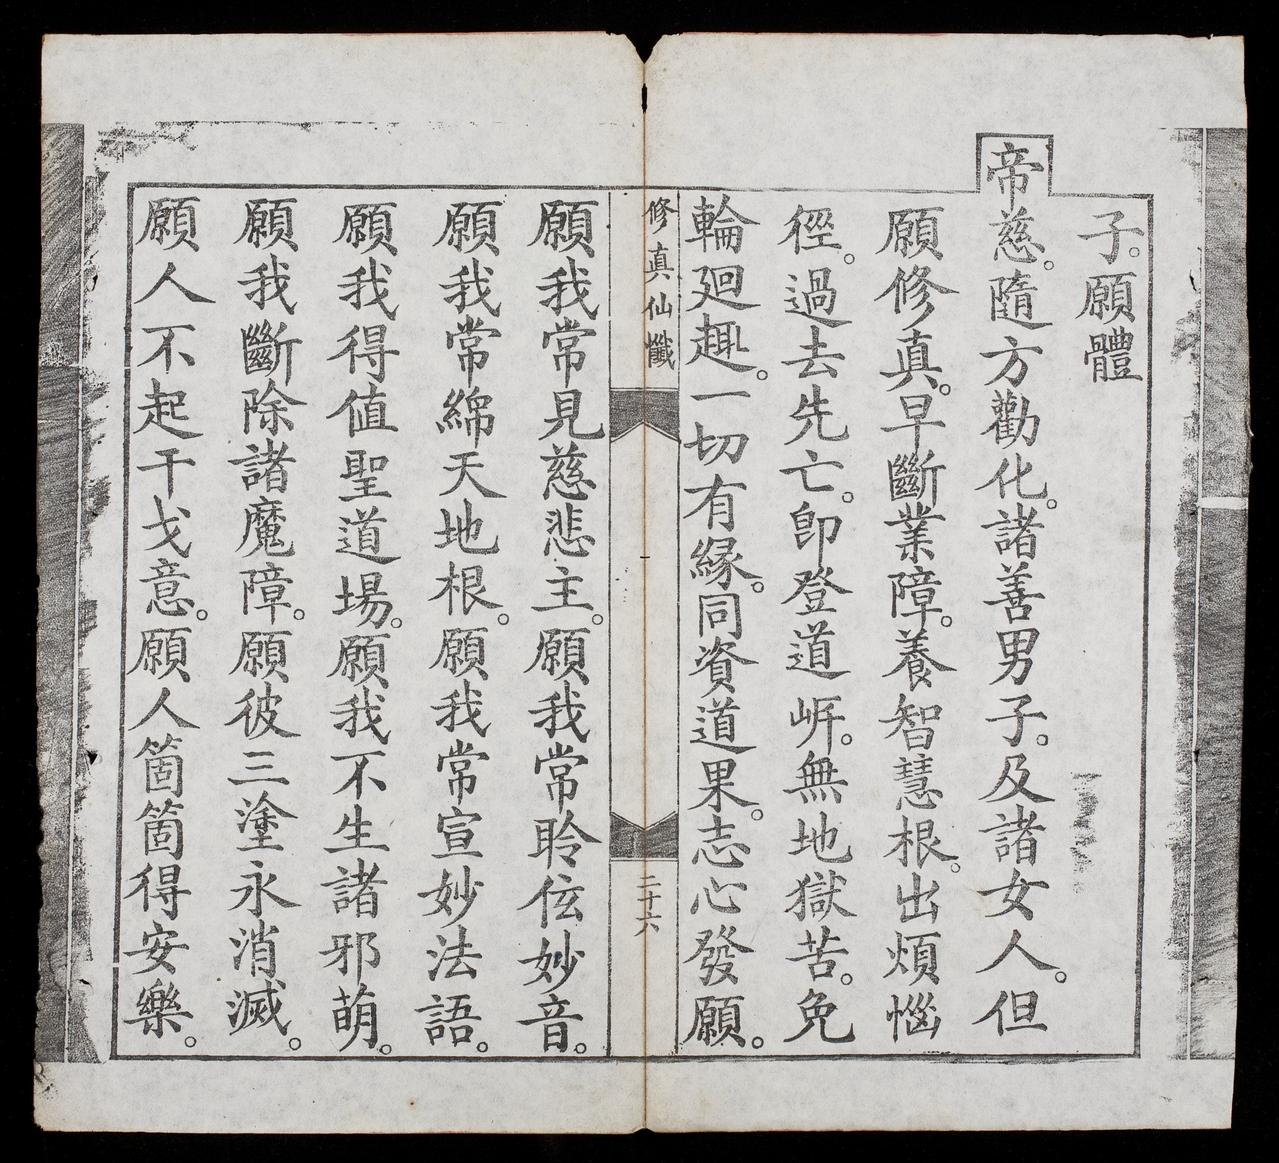 子。願體
帝慈。隨方勸化。諸善男子。及諸女人。但
願修真。早斷業障。養智慧根。出煩惱
徑。過去先亡。卽登道岍。無地獄苦。免
輪廻趣。一切有緣。同資道果。志心發願。
修真仙懺
二十六
願我常見慈悲主。願我常聆伭妙音。
願我常綿天地根。願我常宣妙法語。
願我得值聖道場。願我不生諸邪萌。
願我斷除諸魔障。願彼三塗永消滅。
願人不起干戈意。願人箇箇得安樂。